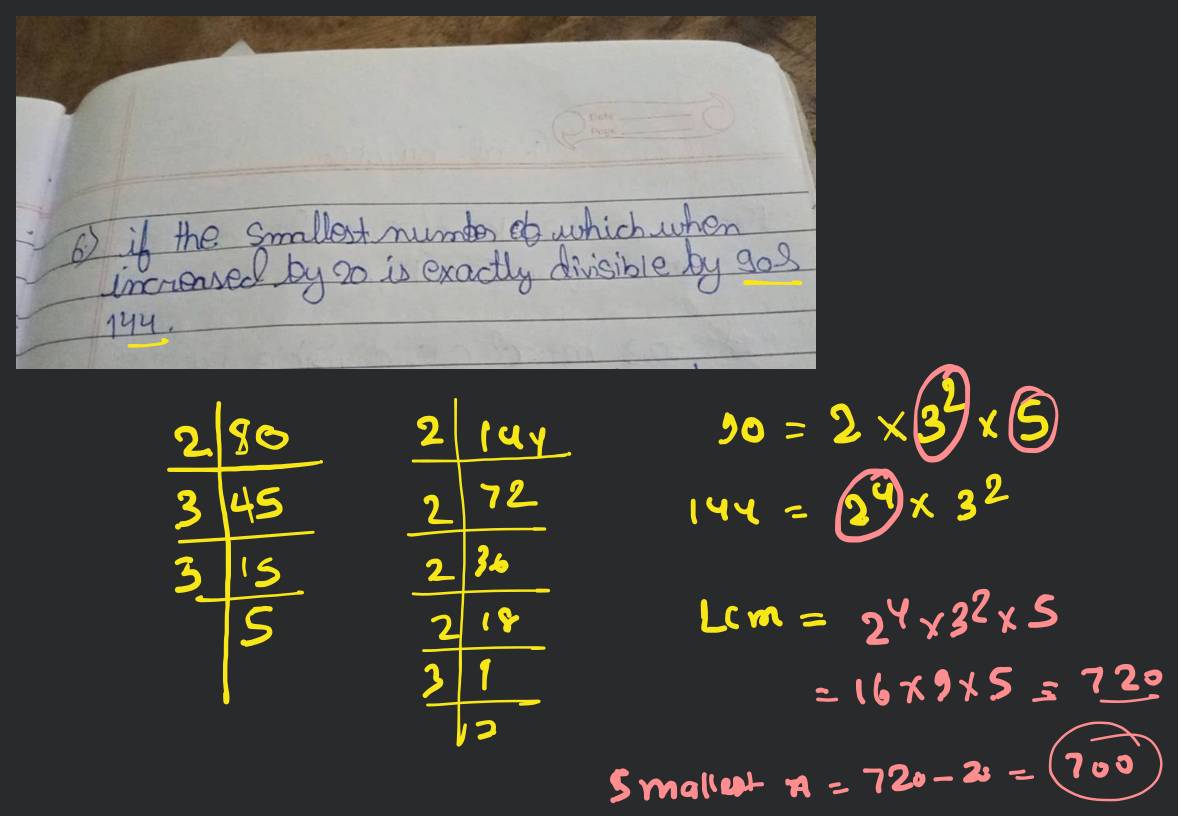 Date
Page
6) if the smallest number of which when
increased by 20 is exactly divisible by 90 &
144.
2 | 80
3 | 45
3 | 15
5
2 | 144
2 | 72
2 | 36
2 | 18
3 | 9
90 = 2 × 3² × 5
144 = 2⁴ × 3²
Lcm = 2⁴ × 3² × 5
= 16 × 9 × 5 = 720
Smallest = 720 - 20 = 700